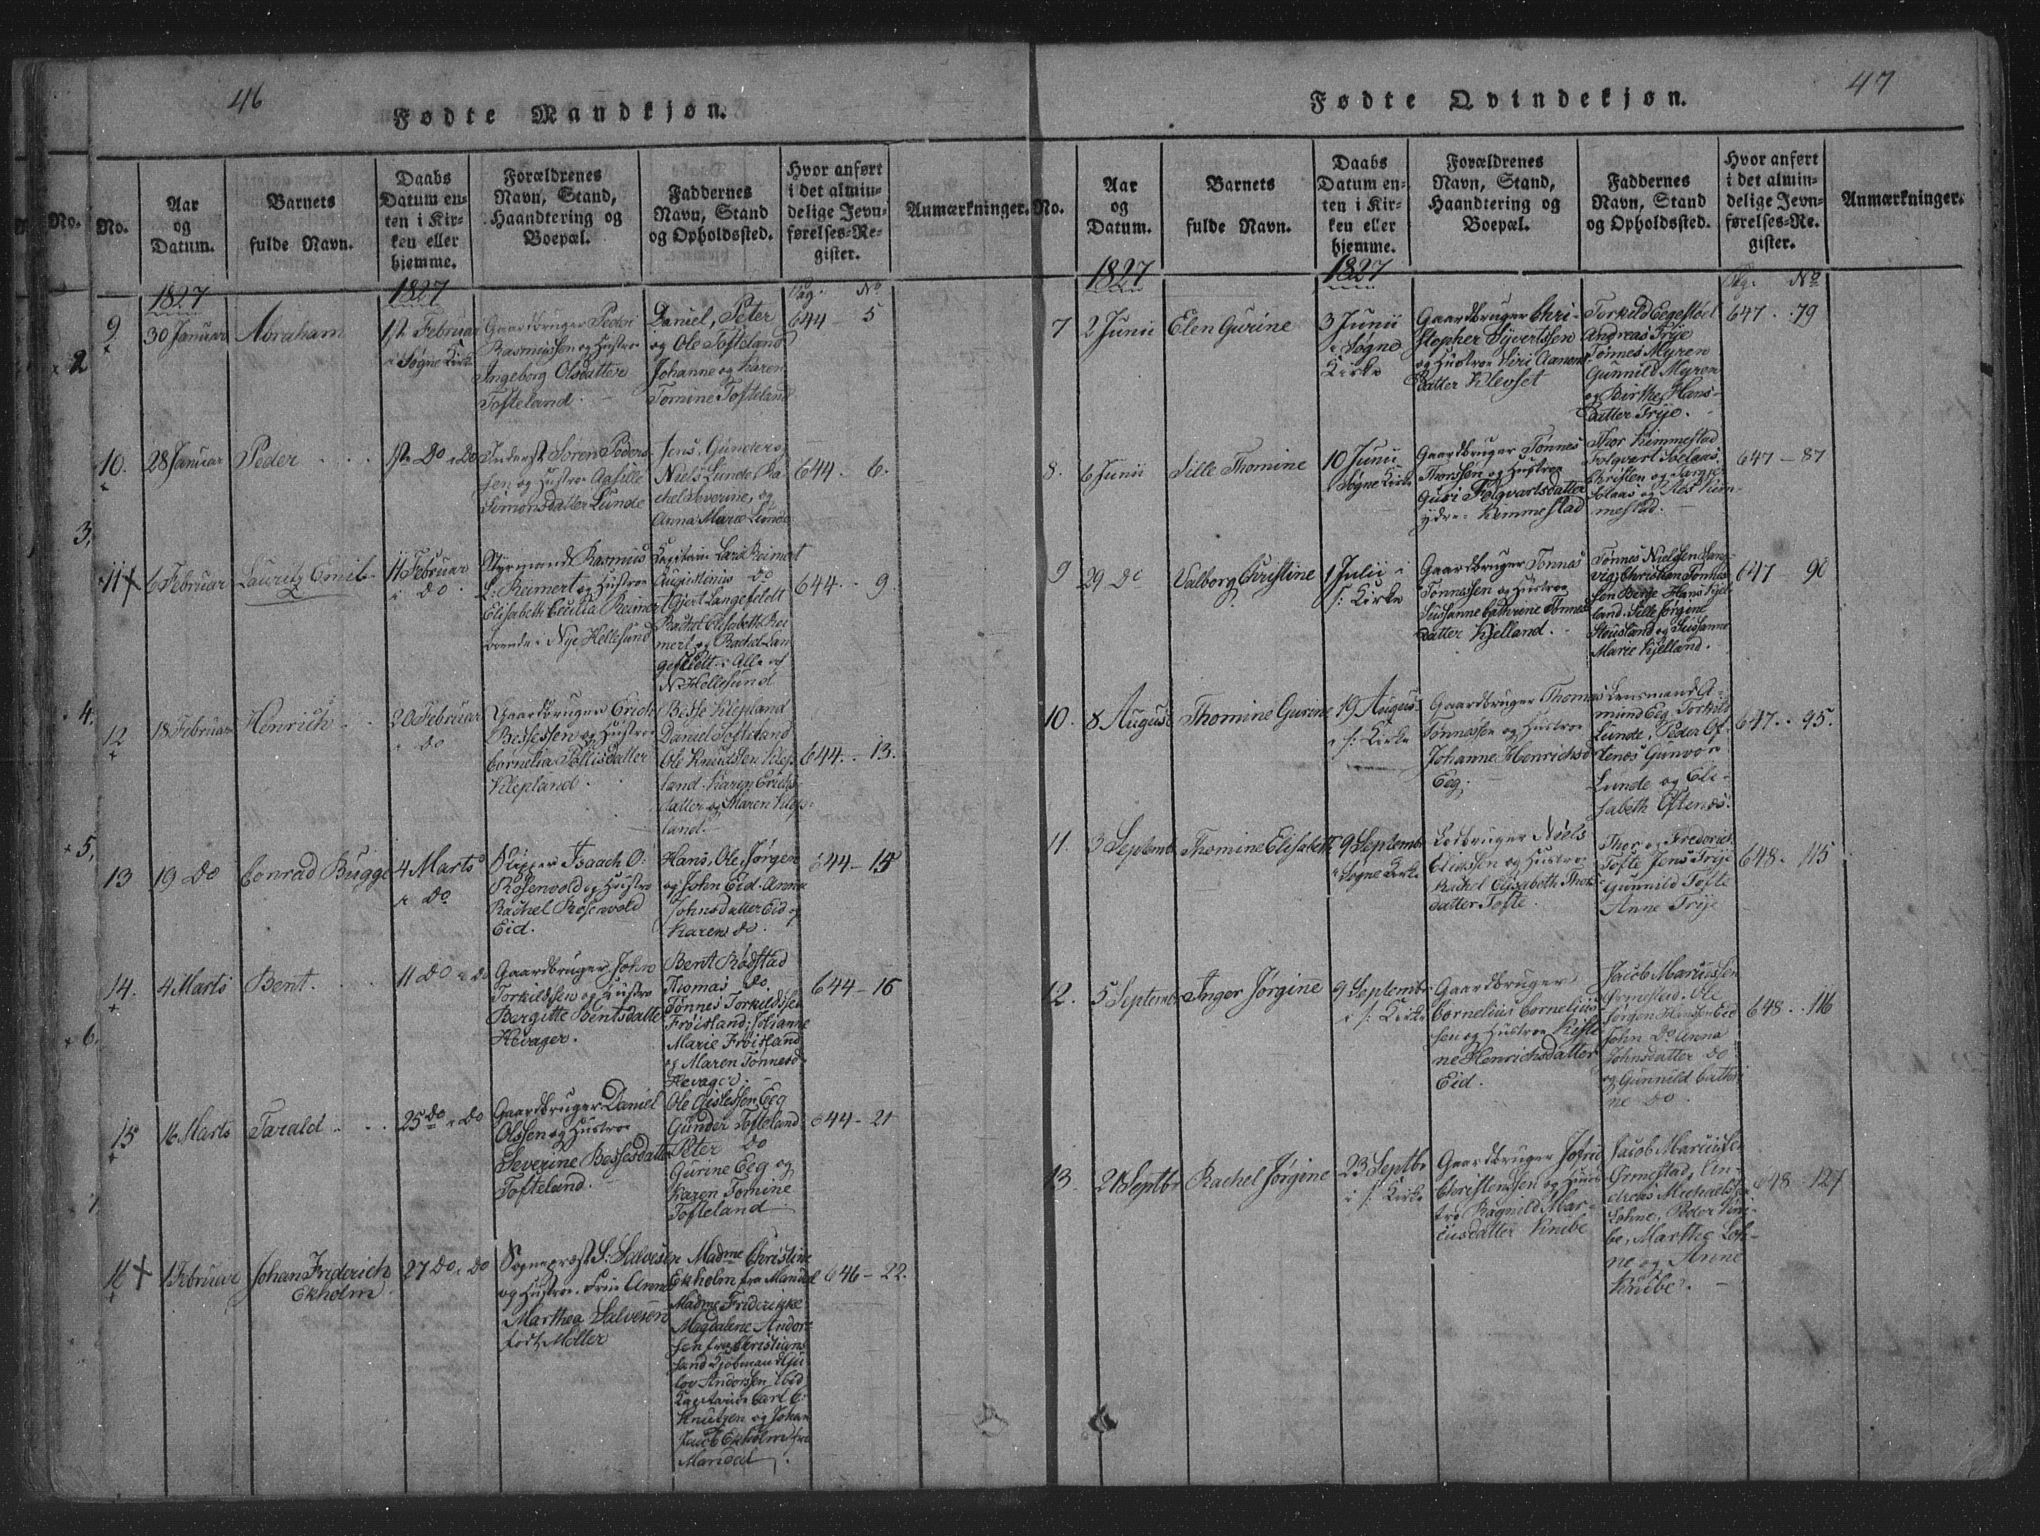 46
Fødte Mandkjøn.
No.
Aar
og
Datum.
Barnets
fulde Navn.
Daabs
Datum en-
ten i Kir-
ken eller
hjemme.
Forældrenes
Navn, Stand,
Haandtering og
Boepæl.
Faddernes
Navn, Stand
og Opholdssted.
Hvor anført
i det almin-
delige Jevn-
førelses-Re-
gister.
Anmærkninger.
1827
1827
Pag. No
9
30 Januar
Abraham
1ste Februar
i Søgne Kirke
Gaardbruger Peder
Rasmussen og Hustroe
Ingeborg Olsdatter
Tofteland
Daniel, Peter
og Ole Tofteland
Johanne og Karen
Tomine Tofteland
644 - 5
10.
28 Januar
Peder
1ste Do i Do
Inderst Søren Peder-
sen og Hustroe Aasille
Simonsdatter Lunde
Jens, Gunders
Niels Lunde, Ra-
chel Severine, og
Anna Marie Lunde
644. 6.
11 +
6 Februar
Lauritz Emil
11 Februar
i Do
Styrmand Rasmus
L. Reimert og Hustroe
Elisabeth Cecilia Reimert
boende i Nye Hellesund
Capitain Lars Reimert
Augustinus Do
Gjert Langefeldt
Rachel Elisabeth Rei-
mert og Rachel Lan-
gefeldt. Alle af
N Hellesund
644. 9.
12
18 Februar
Henrich
20 Februar
i Do
Gaardbruger Erich
Bessesen og Hustroe
Cornelia Tollisdatter
Klepland.
Besse Klepland
Daniel Tofteland
Ole Knudsen Klep-
land. Karen Erichs-
datter og Maren Klep-
land.
644. - 13.
13
19 Do
Conrad Bugge
4 Marts
i Do
Skipper Isaach O:
Rosenvold og Hustroe
Rachel Rosenvold
Eid.
Hans, Ole, Jørgen
og John Eid. Anna
Johnsdatter Eid og
Karen do.
644 - 14
14.
4 Marts
Bent.
11 Do i Do
Gaardbruger John
Torkildsen og Hustroe
Bergitte Bentsdatter
Hevager.
Bent Rødstad
Thomas do.
Tønnes Torkildsen
Frøisland, Johanne
Marie Frøisland
og Maren Tønnesd
Hevager.
644 - 16
15
16 Marts
Tarald
25 do i Do
Gaardbruger Daniel
Olssen og Hustroe
Severine Bessesdatter
Tofteland.
Ole Gislessen Eeg
Gunder Tofteland
Peter Do
Gurine Eeg og
Karen Tomine
Tofteland
644 - 21
16 +
1 Februar
Johan Friderich
Ekholm
27 Do i Do
Sogneprest S. Salvesen
og Hustroe Frue Anne
Marthea Salvesen
født Møller
Madme Christine
Ekholm fra Mandal
Madme Friderikke
Magdalene Ander-
sen fra Christians
sand Kjøbmand Gu-
lov Anderssen ibid
Capitaine Carl C:
Knutzen og Johan
Jacob Ekholm fra
Mandal.
646 - 22.
47
Fødte Qvindekjøn.
No.
Aar
og
Datum.
Barnets
fulde Navn.
Daabs
Datum en-
ten i Kir-
ken eller
hjemme.
Forældrenes
Navn, Stand,
Haandtering og
Boepæl.
Faddernes
Navn, Stand
og Opholdssted.
Hvor anført
i det almin-
delige Jevn-
førelses-Re-
gister.
Anmærkninger.
1827
1827
Pag. No
7
2 Junii
Elen Gurine
3 Junii
i Søgne
Kirke
Gaardbruger Chri-
stopher Syvertssen
og Hustroe Siri Aanons
datter Klevset
Torkild Eegestøel
Andreas Trye
Tønnes Myren
Gunnild Myren
og Birthe Hans-
datter Trye.
647. 79
8.
6 Junii
Sille Thomine
10 Junii
i Søgne Kirke
Gaardbruger Tønnes
Thorssen og Hustroe
Guri Folqvartsdatter
ydre Kimmestad
Thor Kimmestad
Folqvart Solaas
Christen og
Solaas og Kim-
mestad.
647 - 87
9
29 Do
Valborg Christine
1 Julii i
s: Kirke
Gaardbruger Tønnas
Tønnassen og Hustroe
Susanne Cathrine Tønnes
datter Kjelland.
Tønnes Nielssen Lang-
vig, Christian Tønnes-
sen Berge Hans Kjel-
land. Sille Jørgine
Stousland og Susanne
Marie Kjelland.
647 90
10.
8 August
Thomine Gurine
19 August
i s: Kirke
Gaardbruger Thomas
Tønnessen og Hustroe
Johanne Henrichsd
Eeg.
Lensmand A-
mund Eeg, Torkild
Lunde, Peder Of-
tenes Gunvor
Lunde og Eli-
sabeth Oftenes.
647. 95.
11.
3 Septembr
Thomine Elisabeth
9 Septembr
i Søgne Kirke
Lodbruger Niels
Eliassen og Hustroe
Rachel Elisabeth Thors
datter Tofte.
Thor og Frederich
Tofte Jens Trye
Gunnild Tofte
Anne Trye
648. 115
12.
5 Septembr
Inger Jørgine
9 Septembr
i s: Kirke
Gaardbruger
Cornelius Cornelius-
sen og Hustroe Kirste-
ne Henrichsdatter
Eid.
Jacob Mariussen
Ormestad. Ole
Jørgen Hanssen Eid
John Do Anna
Johnsdatter Do
og Gunnild Cathri-
ne Do.
648. 116
13.
21 Septbr
Rachel Jørgine
23 Septbr
i s: Kirke
Gaardbruger Jofrid
Christenssen og Huus-
tro Ragnild Mar-
cusdatter Knibe
Jacob Mariussen
Ormestad, An-
dreas Michaelssen
Lohne, Peder Kni-
be, Marthe Loh-
ne og Anne
Knibe.
648 127